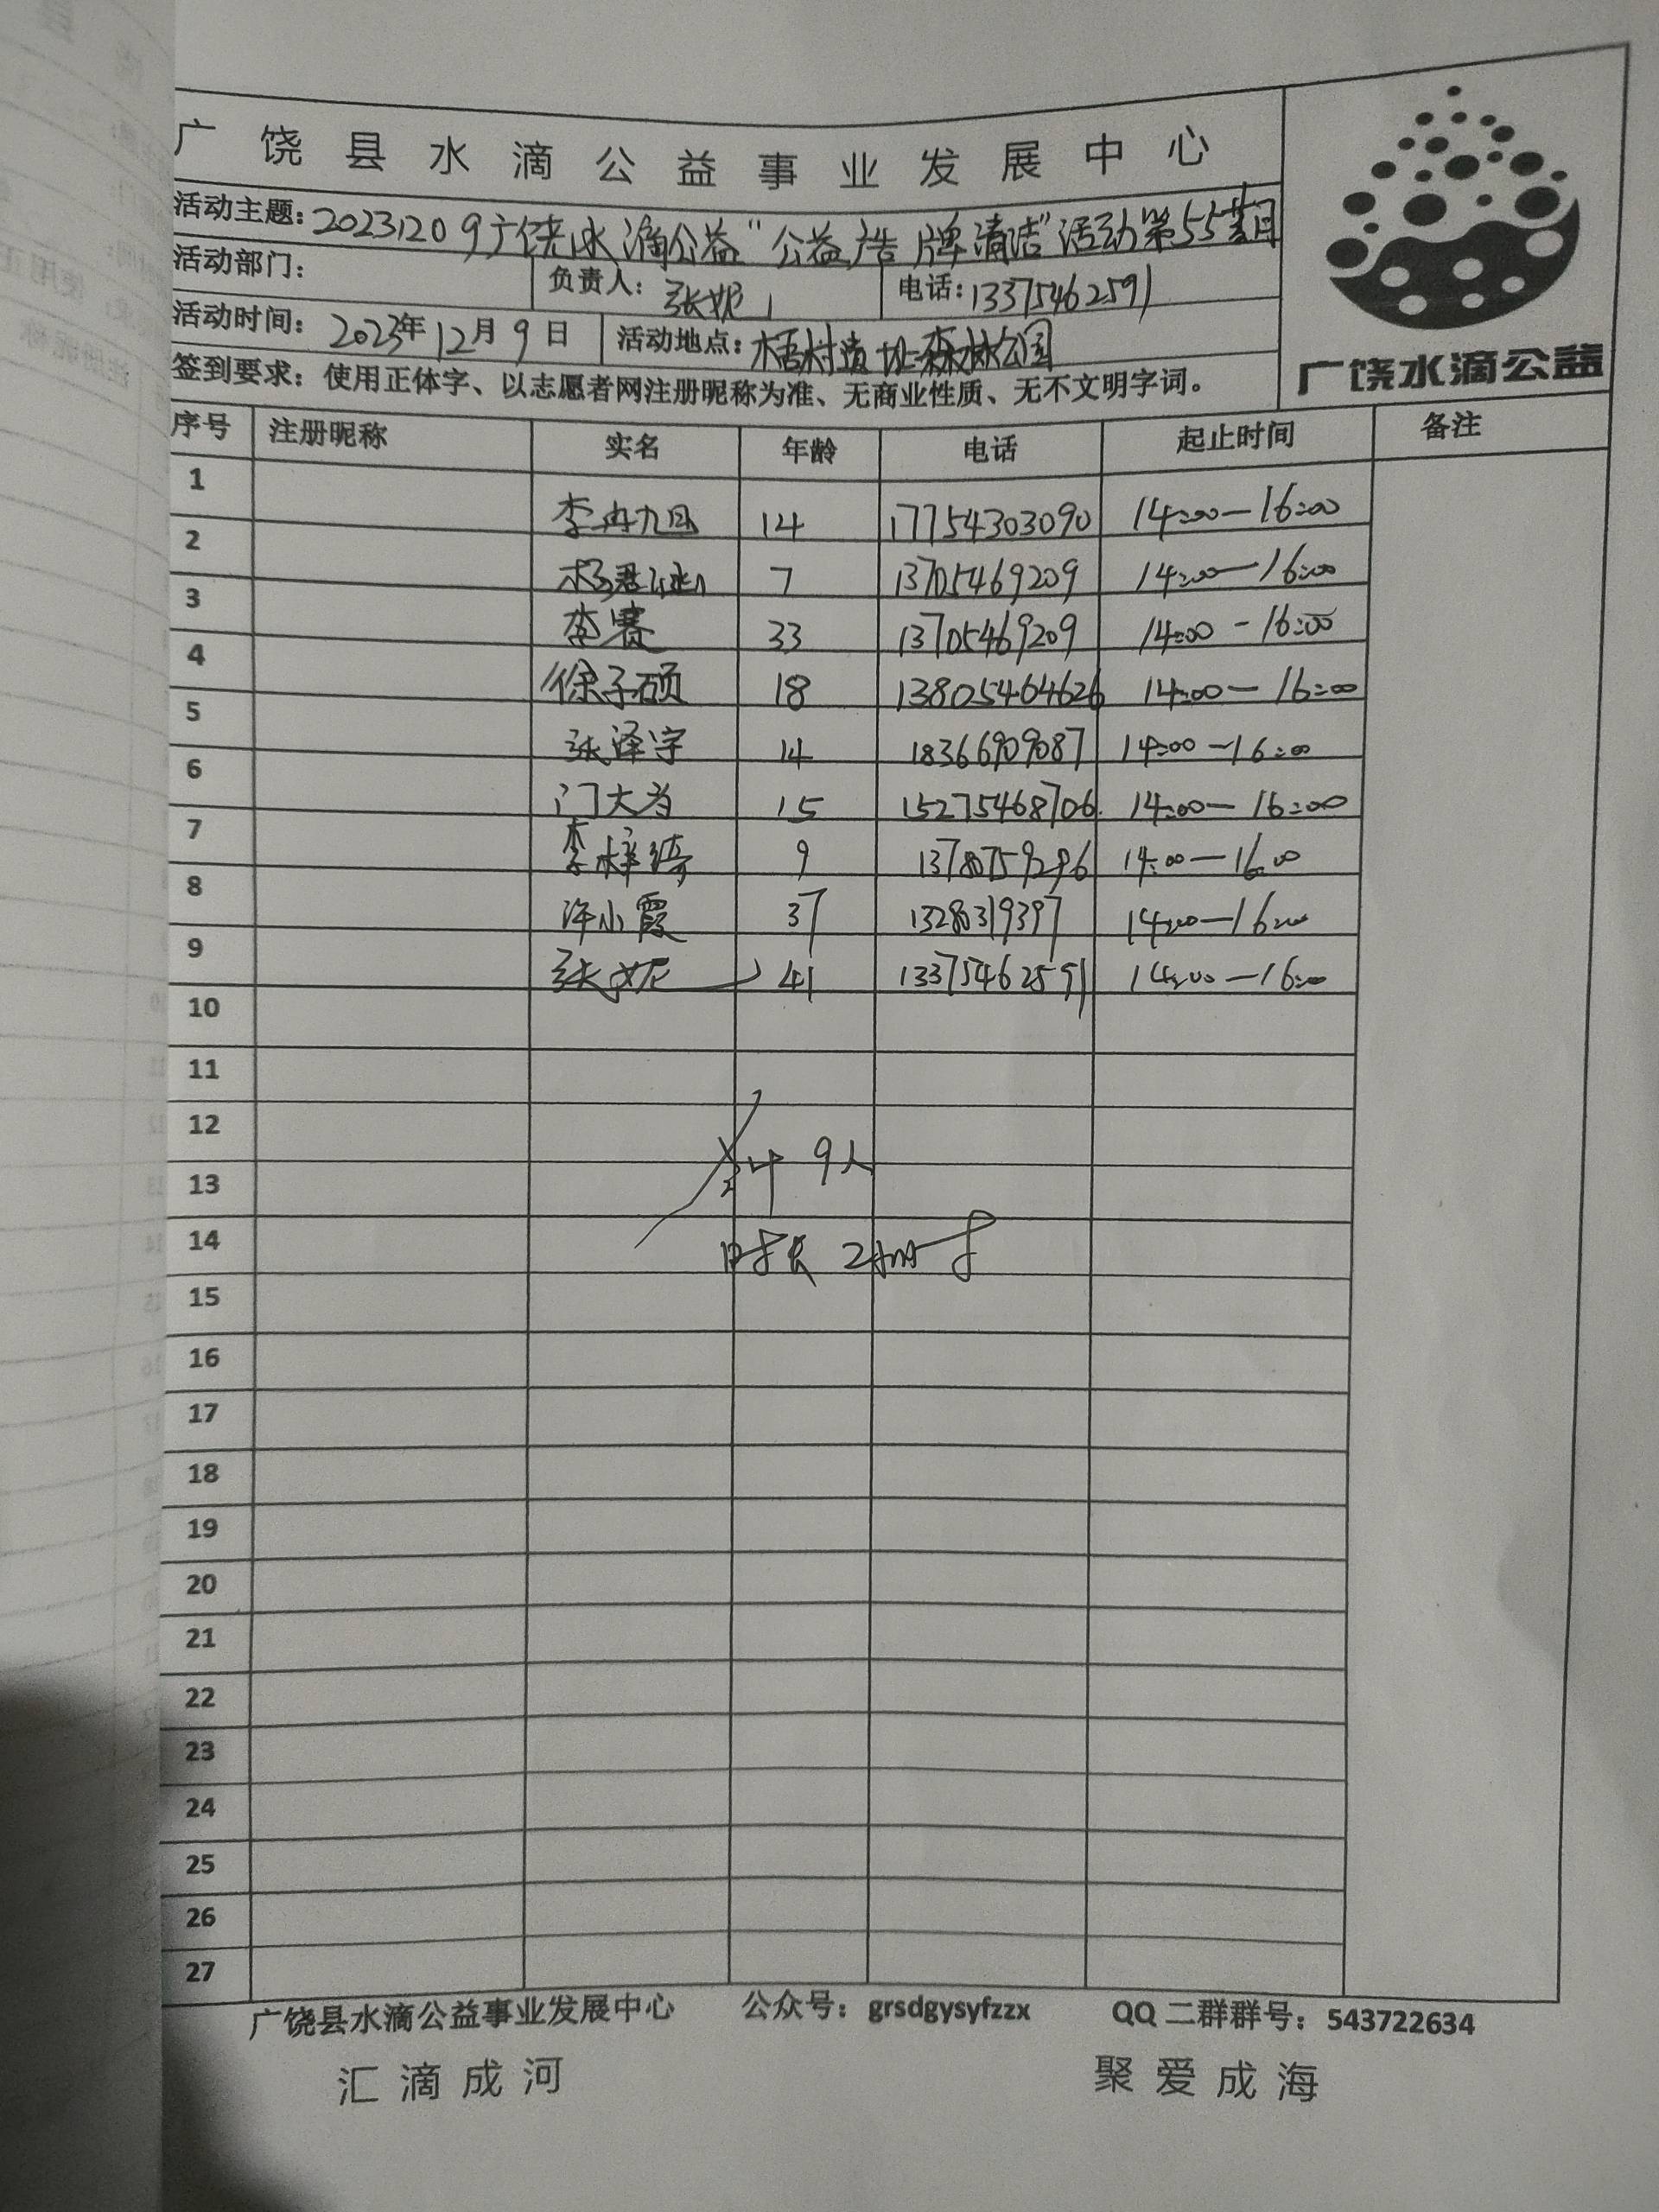 广饶县水滴公益事业发展中心
活动主题：20231209广饶水滴公益“公益广告牌清洁”活动第55期
活动部门： 负责人：张妮 电话：13375462591
活动时间：2023年12月9日 活动地点：梧村遗址森林公园
签到要求：使用正体字、以志愿者网注册昵称为准、无商业性质、无不文明字词。
广饶水滴公益
序号 注册昵称 实名 年龄 电话 起止时间 备注
1 李冉九月 14 17754303090 14:00—16:00
2 杨君 7 13705469209 14:00—16:00
3 李赛 33 13705469209 14:00-16:00
4 徐子硕 18 13805464626 14:00—16:00
5 张泽宇 14 18366909087 14:00—16:00
6 门大为 15 15275468706 14:00—16:00
7 李梓绮 9 14:00—16:00
8 许小霞 37 13280319397 14:00—16:00
9 张妮 41 13375462591 14:00—16:00
10
11
12
共计9人
13
14
时长2小时
15
16
17
18
19
20
21
22
23
24
25
26
27
广饶县水滴公益事业发展中心 公众号：grsdgysyfzzx QQ二群群号：543722634
汇滴成河 聚爱成海